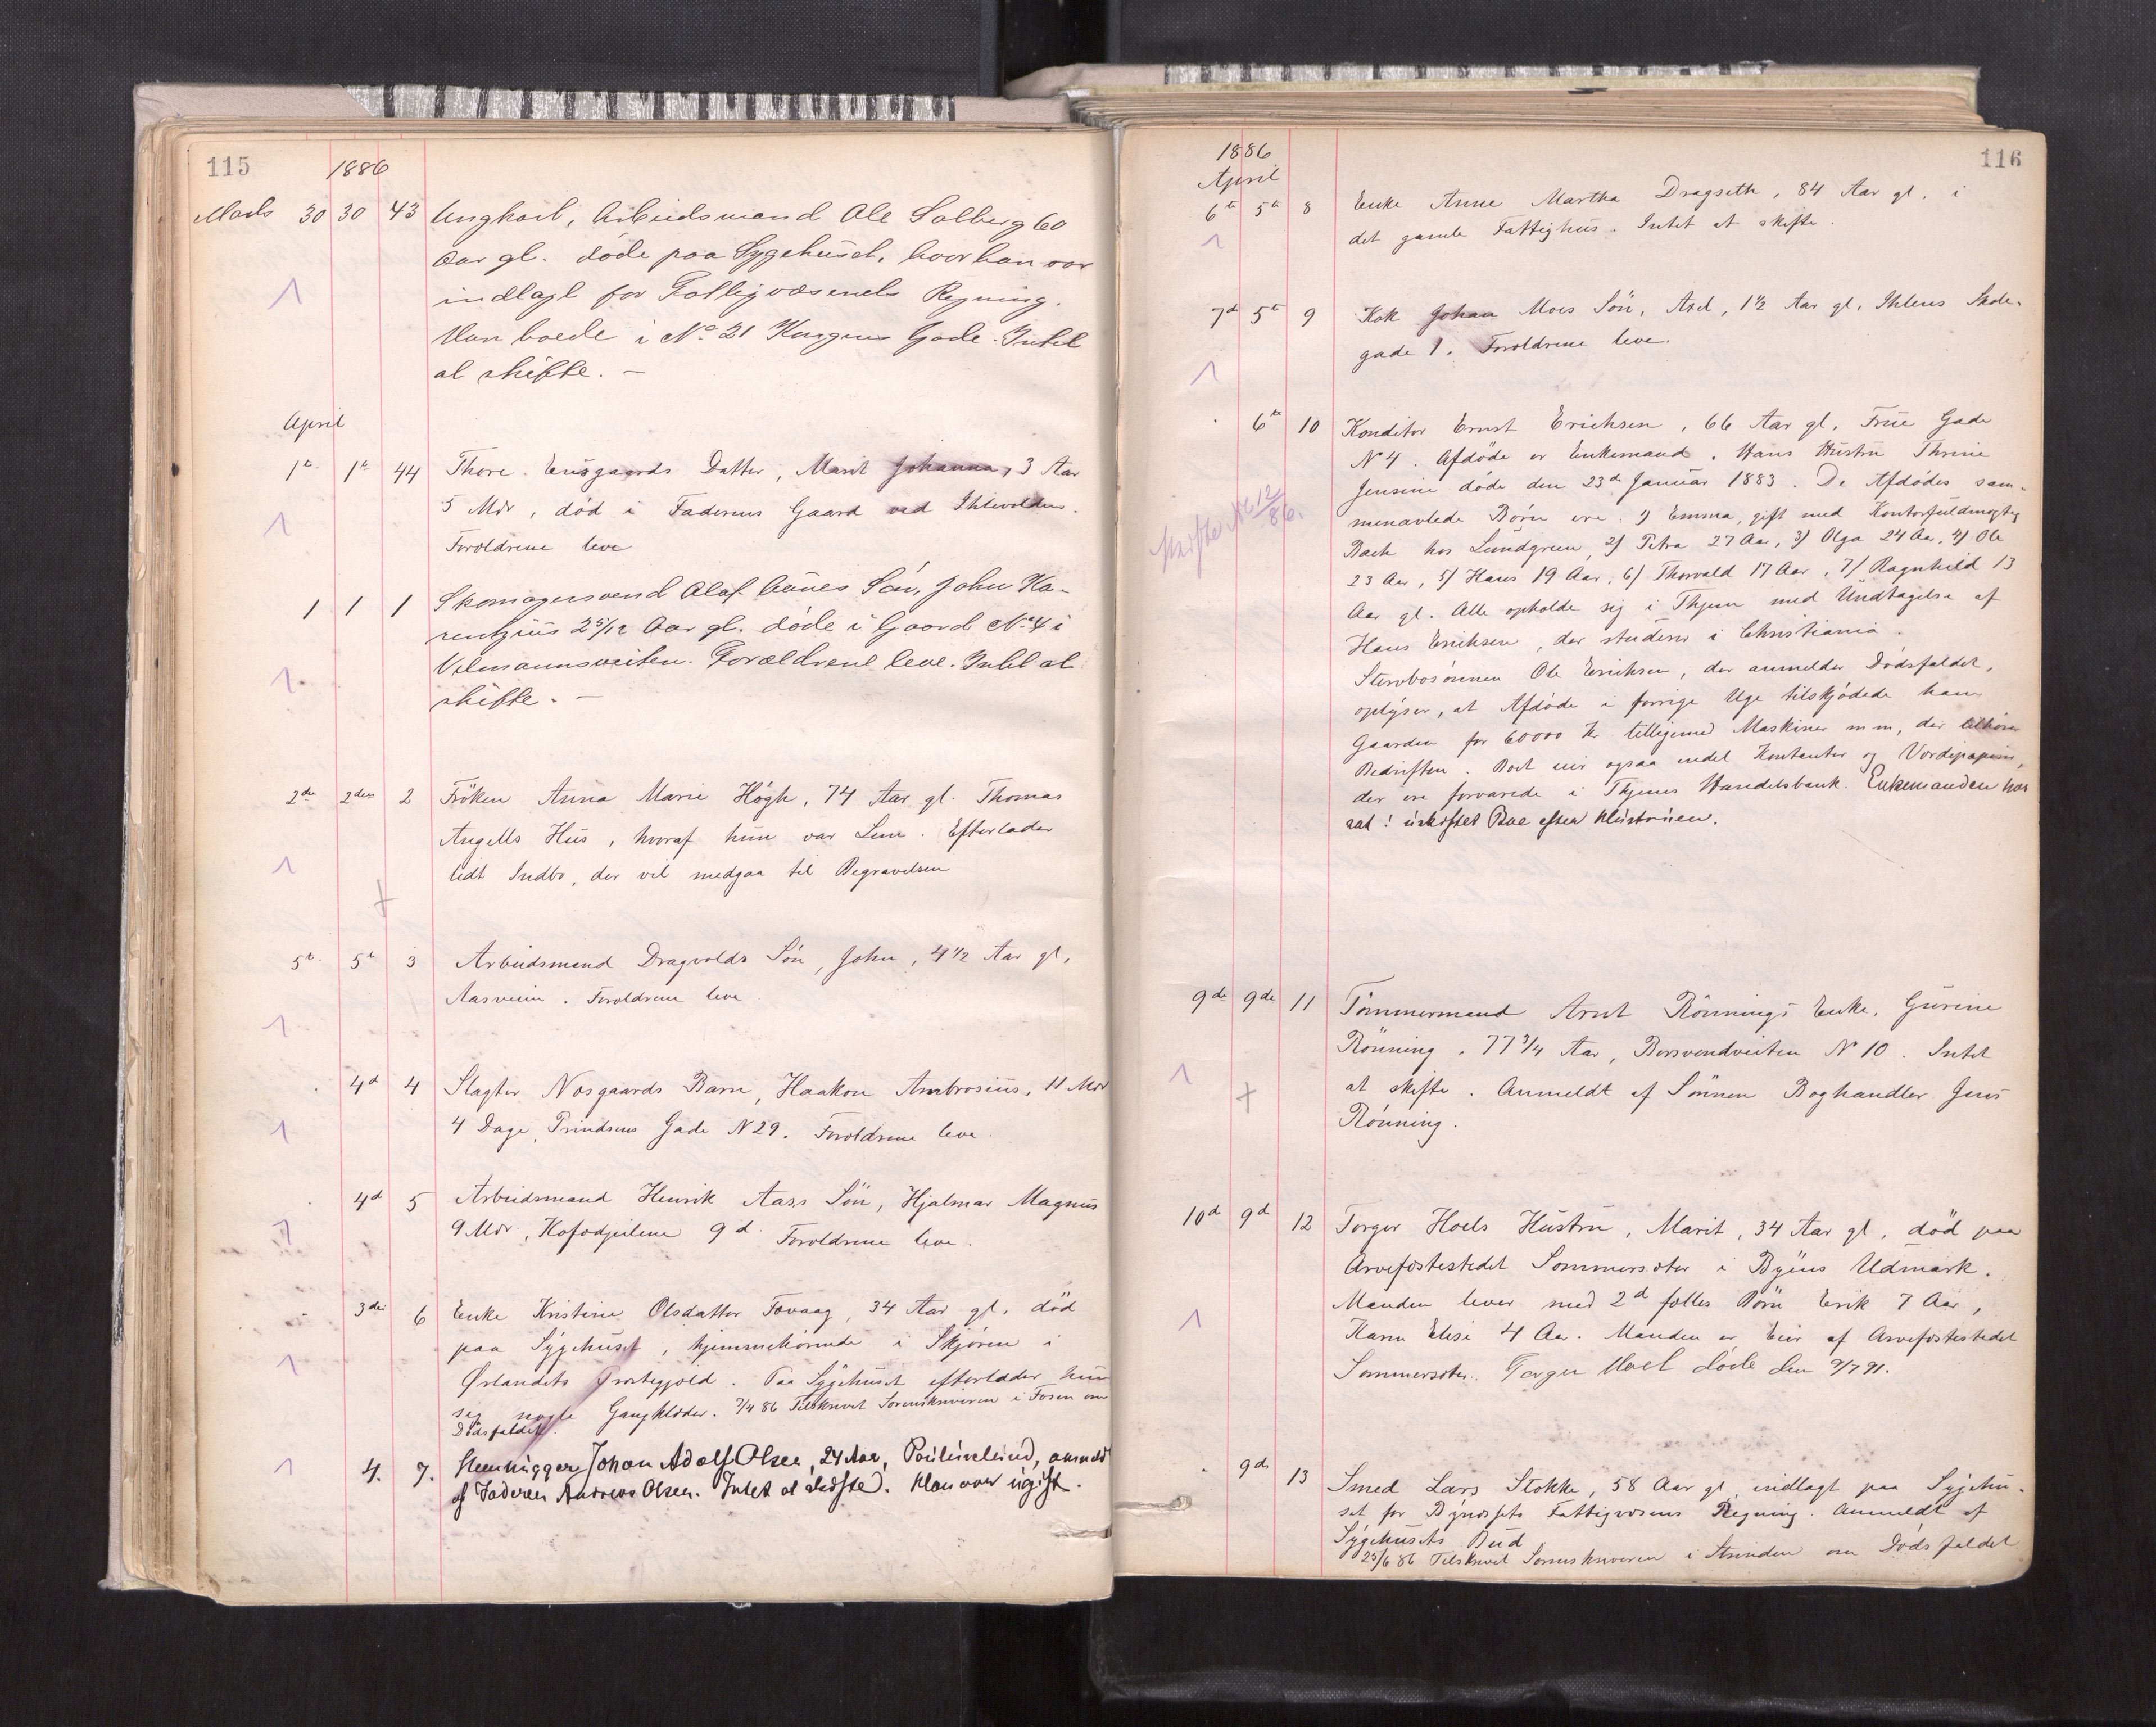 115
1886
Marts 30 30 43 Ungkarl, Arbeidsmand Ole Solberg 60
Aar gl. døde paa Sygehuset, hvor han var
indlagt for Fattigvæsenets Regning.
Han boede i No 21 Kongens Gade. Intet
at skifte. —
April
1ste 1ste 44 Thore Ensgaards Datter, Marit Johanna, 3 Aar
5 Mdr, død i Faderens Gaard ved Ihlevolden.
Forældrene leve
1 1 1 Skomagersvend Olaf Aunes Søn, John
2 5/12 Aar gl. døde i Gaard No 4 i
Forældrene leve. Intet at
skifte. —
2den 2den 2 Frøken Anna Marie Høgh, 74 Aar gl. Thomas
Angells Hus, hvoraf hun var Lem. Efterlader
lidt Indbo, der vil medgaa til Begravelsen
5te 5te 3 Arbeidsmand Dragvolds Søn, John, 4 1/2 Aar gl,
Aasveien. Forældrene leve
4de 4 Slagter Nosgaards Barn, Haakon Ambrosius, 11 Mdr
4 Dage, Prindsens Gade N 29. Forældrene leve.
4de 5 Arbeidsmand Henrik Aass Søn, Hjalmar Magnus
9 Mdr, 9 d. Forældrene leve.
3die 6 Enke Kristine Olsdatter Tovaag, 34 Aar gl. død
paa Sygehuset, hjemmehørende i Skjørin i
Ørlandets Præstegjeld. Paa Sygehuset efterlader hun
sig nogle Gangklæder. 7/4 86 Tilskrevet Sorenskriveren i Fosen om
Dødsfaldet.
4. 7. Stenhugger Johan Adolf Olsen, 24 Aar, anmeldt
af Faderen Andreas Olsen. Intet at skifte. Han var ugift.
116
1886
April
6te 5te 8 Enke Anne Martha Dragseth, 84 Aar gl. i
det gamle Fattighus. Intet at skifte.
7de 5te 9 Kok Johan Moes Søn, Axel, 1 1/2 Aar gl. Ihlens Stræde-
gade 1. Forældrene leve.
Skifte No 12/86.
6te 10 Konditor Ernst Erichsen, 66 Aar gl, Frue Gade
N 4. Afdøde er Enkemand. Hans Hustru Thrine
Jensine døde den 23de Januar 1883. De Afdødes sam-
menavlede Børn ere: 1) Emma, gift med Kontorfuldmægtig
Bach hos Lundgreen, 2) Petra 27 Aar, 3) Olga 24 Aar, 4) Ole
23 Aar, 5) Hans 19 Aar, 6) Thorvald 17 Aar, 7) Ragnhild 13
Aar gl. Alle opholde sig i Thjem med Undtagelse af
Hans Erichsen, der studerer i Christiania.
Stervbosønnen Ole Erichsen, der anmelder Dødsfaldet,
oplyser, at Afdøde i forrige Uge tilskjødede ham
Gaarden for 60000 Kr tilligemed Maskiner m m, der tilhører
Bedriften. Boet eier ogsaa endel Kontanter og Værdipapirer,
der ere forvarede i Thjems Handelsbank. Enkemanden har
sat i uskiftet Boe efter Hustruen.
9de 9de 11 Tømmermand Arnt Rønnings Enke, Gurine
Rønning, 77 3/4 Aar, Borsvendveiten N 10. Intet
at skifte. Anmeldt af Sønnen Boghandler Jens
Rønning.
10de 9de 12 Torger Hoels Hustru, Marit, 34 Aar gl, død paa
Arvefæstestedet Sommersæter i Byens Udmark.
Manden lever med 2de fælles Børn Erik 7 Aar,
Karen Elise 4 Aar. Manden er Eier af Arvefæstestedet
Sommersæter. Torger Hoel døde den 9/7 91.
9de 13 Smed Lars Stokke, 58 Aar gl, indlagt paa Sygehu-
set for Bynæssets Fattigvæsens Regning. Anmeldt af
Sygehusets Bud
25/6 86 Tilskrevet Sorenskriveren i Strinden om Dødsfaldet